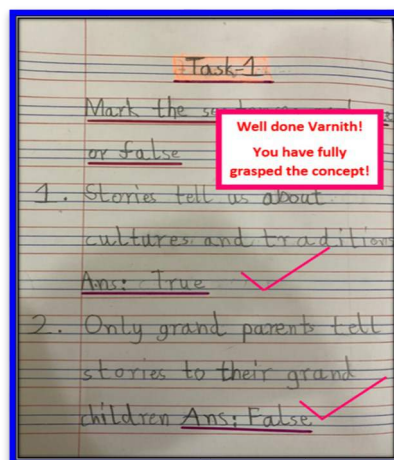 Task-1
Mark the
or false
Well done Varnith!
You have fully
grasped the concept!
1. Stories tell us about
cultures and traditions
Ans: True
2. Only grand parents tell
stories to their grand
children Ans: False